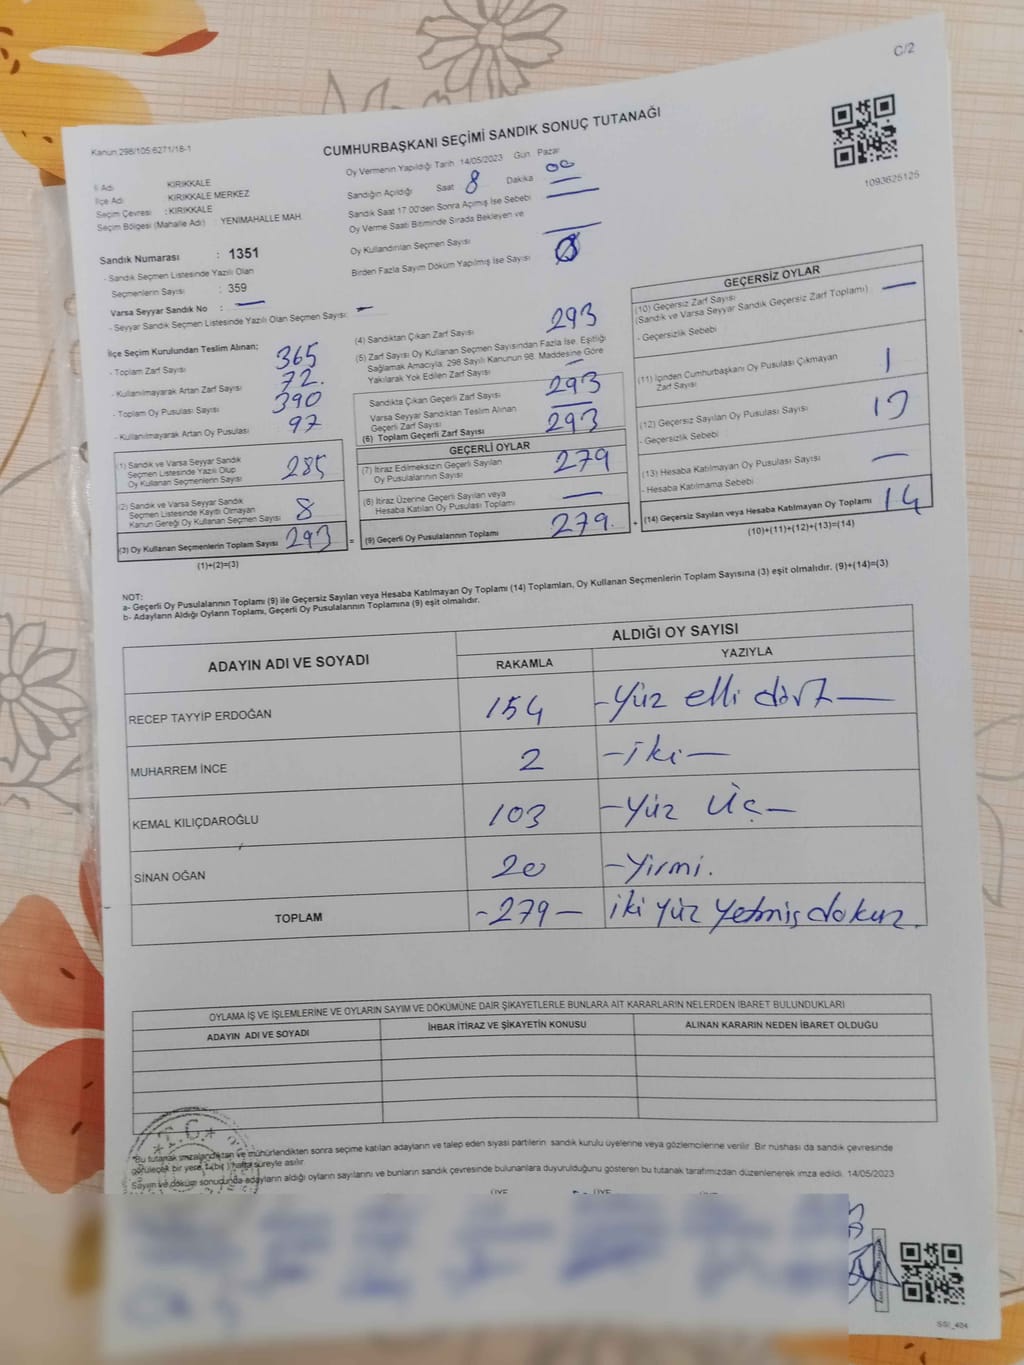 C/2
Kanun 298/105:6271/18-1
CUMHURBAŞKANI SEÇİMİ SANDIK SONUÇ TUTANAĞI
1093625125
İl Adı KIRIKKALE
İlçe Adı KIRIKKALE MERKEZ
Seçim Çevresi : KIRIKKALE
Seçim Bölgesi (Mahalle Adı) : YENİMAHALLE MAH.
Oy Vermenin Yapıldığı Tarih 14/05/2023 Gün Pazar
Sandığın Açıldığı Saat 8 Dakika 00
Sandık Saat 17.00'den Sonra Açılmış İse Sebebi
Oy Verme Saati Bitiminde Sırada Bekleyen ve
Oy Kullandırılan Seçmen Sayısı
Birden Fazla Sayım Döküm Yapılmış İse Sayısı
Sandık Numarası : 1351
- Sandık Seçmen Listesinde Yazılı Olan
Seçmenlerin Sayısı : 359
Varsa Seyyar Sandık No : —
- Seyyar Sandık Seçmen Listesinde Yazılı Olan Seçmen Sayısı: —
İlçe Seçim Kurulundan Teslim Alınan;
- Toplam Zarf Sayısı 365
- Kullanılmayarak Artan Zarf Sayısı 72.
- Toplam Oy Pusulası Sayısı 390
- Kullanılmayarak Artan Oy Pusulası 97
(1) Sandık ve Varsa Seyyar Sandık
Seçmen Listesinde Yazılı Olup
Oy Kullanan Seçmenlerin Sayısı 285
(2) Sandık ve Varsa Seyyar Sandık
Seçmen Listesinde Kayıtlı Olmayan
Kanun Gereği Oy Kullanan Seçmen Sayısı 8
(3) Oy Kullanan Seçmenlerin Toplam Sayısı 293
(1)+(2)=(3)
(4) Sandıktan Çıkan Zarf Sayısı 293
(5) Zarf Sayısı Oy Kullanan Seçmen Sayısından Fazla İse, Eşitliği
Sağlamak Amacıyla, 298 Sayılı Kanunun 98. Maddesine Göre
Yakılarak Yok Edilen Zarf Sayısı —
Sandıkta Çıkan Geçerli Zarf Sayısı 293
Varsa Seyyar Sandıktan Teslim Alınan
Geçerli Zarf Sayısı —
(6) Toplam Geçerli Zarf Sayısı 293
GEÇERLİ OYLAR
(7) İtiraz Edilmeksizin Geçerli Sayılan
Oy Pusulalarının Sayısı 279
(8) İtiraz Üzerine Geçerli Sayılan veya
Hesaba Katılan Oy Pusulası Toplamı —
(9) Geçerli Oy Pusulalarının Toplamı 279.
GEÇERSİZ OYLAR
(10) Geçersiz Zarf Sayısı
(Sandık ve Varsa Seyyar Sandık Geçersiz Zarf Toplamı) —
- Geçersizlik Sebebi
(11) İçinden Cumhurbaşkanı Oy Pusulası Çıkmayan
Zarf Sayısı 1
(12) Geçersiz Sayılan Oy Pusulası Sayısı
- Geçersizlik Sebebi
(13) Hesaba Katılmayan Oy Pusulası Sayısı —
- Hesaba Katılmama Sebebi
(14) Geçersiz Sayılan veya Hesaba Katılmayan Oy Toplamı 14
(10)+(11)+(12)+(13)=(14)
NOT:
a- Geçerli Oy Pusulalarının Toplamı (9) ile Geçersiz Sayılan veya Hesaba Katılmayan Oy Toplamı (14) Toplamları, Oy Kullanan Seçmenlerin Toplam Sayısına (3) eşit olmalıdır. (9)+(14)=(3)
b- Adayların Aldığı Oyların Toplamı, Geçerli Oy Pusulalarının Toplamına (9) eşit olmalıdır.
ADAYIN ADI VE SOYADI ALDIĞI OY SAYISI
RAKAMLA YAZIYLA
RECEP TAYYİP ERDOĞAN 154 -Yüz elli dört—
MUHARREM İNCE 2 -iki—
KEMAL KILIÇDAROĞLU 103 -Yüz Üç—
SİNAN OĞAN 20 -Yirmi.
TOPLAM -279- iki yüz yetmiş dokuz.
OYLAMA İŞ VE İŞLEMLERİNE VE OYLARIN SAYIM VE DÖKÜMÜNE DAİR ŞİKAYETLERLE BUNLARA AİT KARARLARIN NELERDEN İBARET BULUNDUKLARI
ADAYIN ADI VE SOYADI İHBAR İTİRAZ VE ŞİKAYETİN KONUSU ALINAN KARARIN NEDEN İBARET OLDUĞU
*T.C*
*Bu tutanak imzalandıktan ve mühürlendikten sonra seçime katılan adayların ve talep eden siyasi partilerin sandık kurulu üyelerine veya gözlemcilerine verilir. Bir nüshası da sandık çevresinde
görülecek bir yere, 1 (bir) hafta süreyle asılır.
Sayım ve döküm sonucunda adayların aldığı oyların sayılarını ve bunların sandık çevresinde bulunanlara duyurulduğunu gösteren bu tutanak tarafımızdan düzenlenerek imza edildi. 14/05/2023
ÜYE ÜYE ÜYE